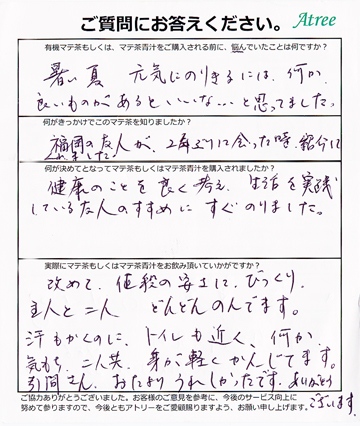 ご質問にお答えください。 Atree
有機マテ茶もしくは、マテ茶青汁をご購入される前に、悩んでいたことは何ですか?
暑い夏 元気にのりきるには、何か
良いものがあるといいな…と思ってました。
何がきっかけでこのマテ茶を知りましたか?
福岡の友人が、2年ぶりに会った時、紹介して
くれました
何が決めてとなってマテ茶もしくはマテ茶青汁を購入されましたか?
健康のことを良く考え、生活を実践
している友人のすすめに すぐのりました。
実際にマテ茶もしくはマテ茶青汁をお飲み頂いていかがですか?
改めて、値段の安さに、びっくり、
主人と二人 どんどんのんでます。
汗もかくのに、トイレも近く、何か
気もち、二人共、身が軽くかんじてます。
引間さん、おたよりうれしかったです。ありがとう
ございます。
ご協力ありがとうございました。お客様のご意見を参考に、今後のサービス向上に
努めて参りますので、今後ともアトリーをご愛顧賜りますよう、お願い申し上げます。